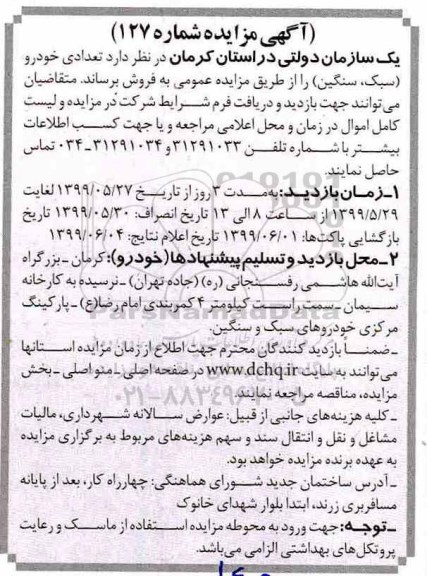 (آگهی مزایده شماره ۱۲۷)
یک سازمان دولتی در استان کرمان در نظر دارد تعدادی خودرو
(سبک، سنگین) را از طریق مزایده عمومی به فروش برساند. متقاضیان
می‌توانند جهت بازدید و دریافت فرم شرایط شرکت در مزایده و لیست
کامل اموال در زمان و محل اعلامی مراجعه و یا جهت کسب اطلاعات
بیشتر با شماره تلفن ۳۱۲۹۱۰۳۳ و ۳۱۲۹۱۰۳۴ـ۰۳۴ تماس
حاصل نمایند.
۱ـ زمان بازدید: به‌مدت ۳ روز از تاریخ ۱۳۹۹/۰۵/۲۷ لغایت
۱۳۹۹/۵/۲۹ از ساعت ۸ الی ۱۳ تاریخ انصراف: ۱۳۹۹/۰۵/۳۰ تاریخ
بازگشایی پاکت‌ها: ۱۳۹۹/۰۶/۰۱ تاریخ اعلام نتایج: ۱۳۹۹/۰۶/۰۴
۲ـ محل بازدید و تسلیم پیشنهادها (خودرو): کرمان ـ بزرگراه
آیت‌الله هاشمی رفسنجانی (ره) (جاده تهران) ـ نرسیده به کارخانه
سیمان ـ سمت راست کیلومتر ۴ کمربندی امام رضا(ع) ـ پارکینگ
مرکزی خودروهای سبک و سنگین.
ـ ضمناً بازدید کنندگان محترم جهت اطلاع از زمان مزایده استانها
می‌توانند به سایت www.dchq.ir در صفحه اصلی ـ منو اصلی ـ بخش
مزایده، مناقصه مراجعه نمایند.
ـ کلیه هزینه‌های جانبی از قبیل: عوارض سالانه شهرداری، مالیات
مشاغل و نقل و انتقال سند و سهم هزینه‌های مربوط به برگزاری مزایده
به عهده برنده مزایده خواهد بود.
ـ آدرس ساختمان جدید شورای هماهنگی: چهارراه کار، بعد از پایانه
مسافربری زرند، ابتدا بلوار شهدای خانوک
ـ توجه: جهت ورود به محوطه مزایده استفاده از ماسک و رعایت
پروتکل‌های بهداشتی الزامی می‌باشد.